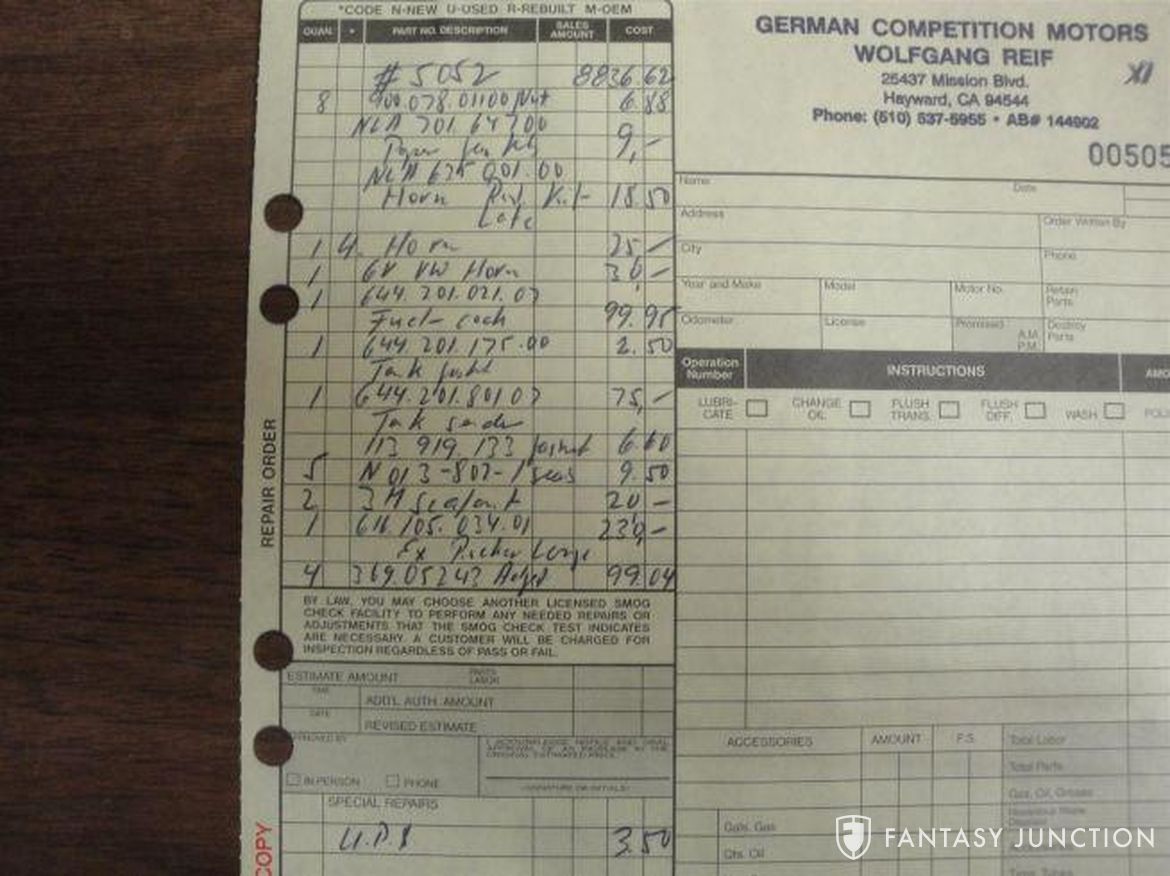 *CODE N-NEW U-USED R-REBUILT M-OEM
QUAN. * PART NO. DESCRIPTION SALES AMOUNT COST
# 5052 8836.62
8 900.078.01100 Nut 6.88
NLA 701.64700
9,-
NLA 635.001.00
Horn Kit 18.50
Late
1 4. Horn 25,-
1 6V VW Horn 30,-
1 644.201.021.07
Fuel-cock 99.95
1 644.201.175.00 2.50
Tank
1 644.201.80107 75,-
Tank
113 919.133 gasket 6.60
5 N 013-807-1 9.50
2 3M Sealant 20,-
1 616.105.034.01 230,-
Ex
4 369.05243 99.04
BY LAW, YOU MAY CHOOSE ANOTHER LICENSED SMOG
CHECK FACILITY TO PERFORM ANY NEEDED REPAIRS OR
ADJUSTMENTS THAT THE SMOG CHECK TEST INDICATES
ARE NECESSARY. A CUSTOMER WILL BE CHARGED FOR
INSPECTION REGARDLESS OF PASS OR FAIL.
ESTIMATE AMOUNT PARTS LABOR
TIME ADD'L AUTH. AMOUNT
DATE REVISED ESTIMATE
IN PERSON PHONE
SPECIAL REPAIRS
U.P.S 3.50
REPAIR ORDER
COPY
GERMAN COMPETITION MOTORS
WOLFGANG REIF
25437 Mission Blvd.
Hayward, CA 94544
Phone: (510) 537-5955 • AB# 144902
XI
00505
Name Date
Address Order Written By
City Phone
Year and Make Model Motor No. Retain Parts
Odometer License Promised A.M. P.M. Destroy Parts
Operation Number INSTRUCTIONS AMO
LUBRI-CATE CHANGE OIL FLUSH TRANS. FLUSH DIFF. WASH POL
ACCESSORIES AMOUNT F.S. Total Labor
Total Parts
Gas, Oil, Grease
Gals. Gas
Qts. Oil
FANTASY JUNCTION